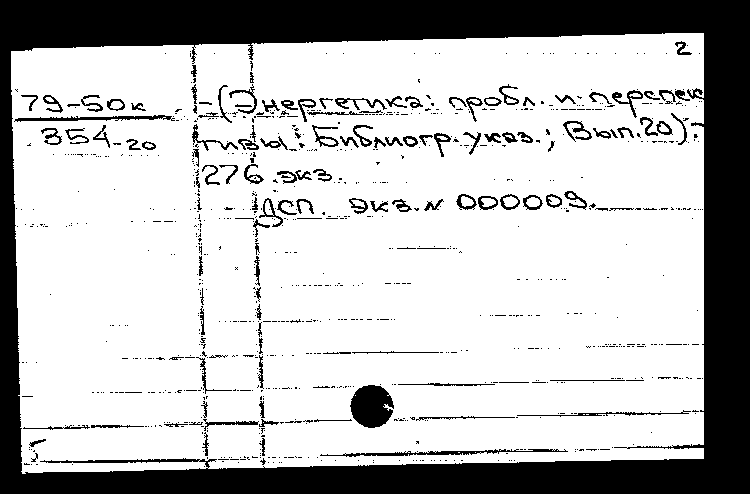 2
79-50к -(Энергетика: пробл. и перспек
354-20 тивы: Библиогр. указ.; Вып.20).-
276 экз.
ДСП. экз.№ 000009.
5